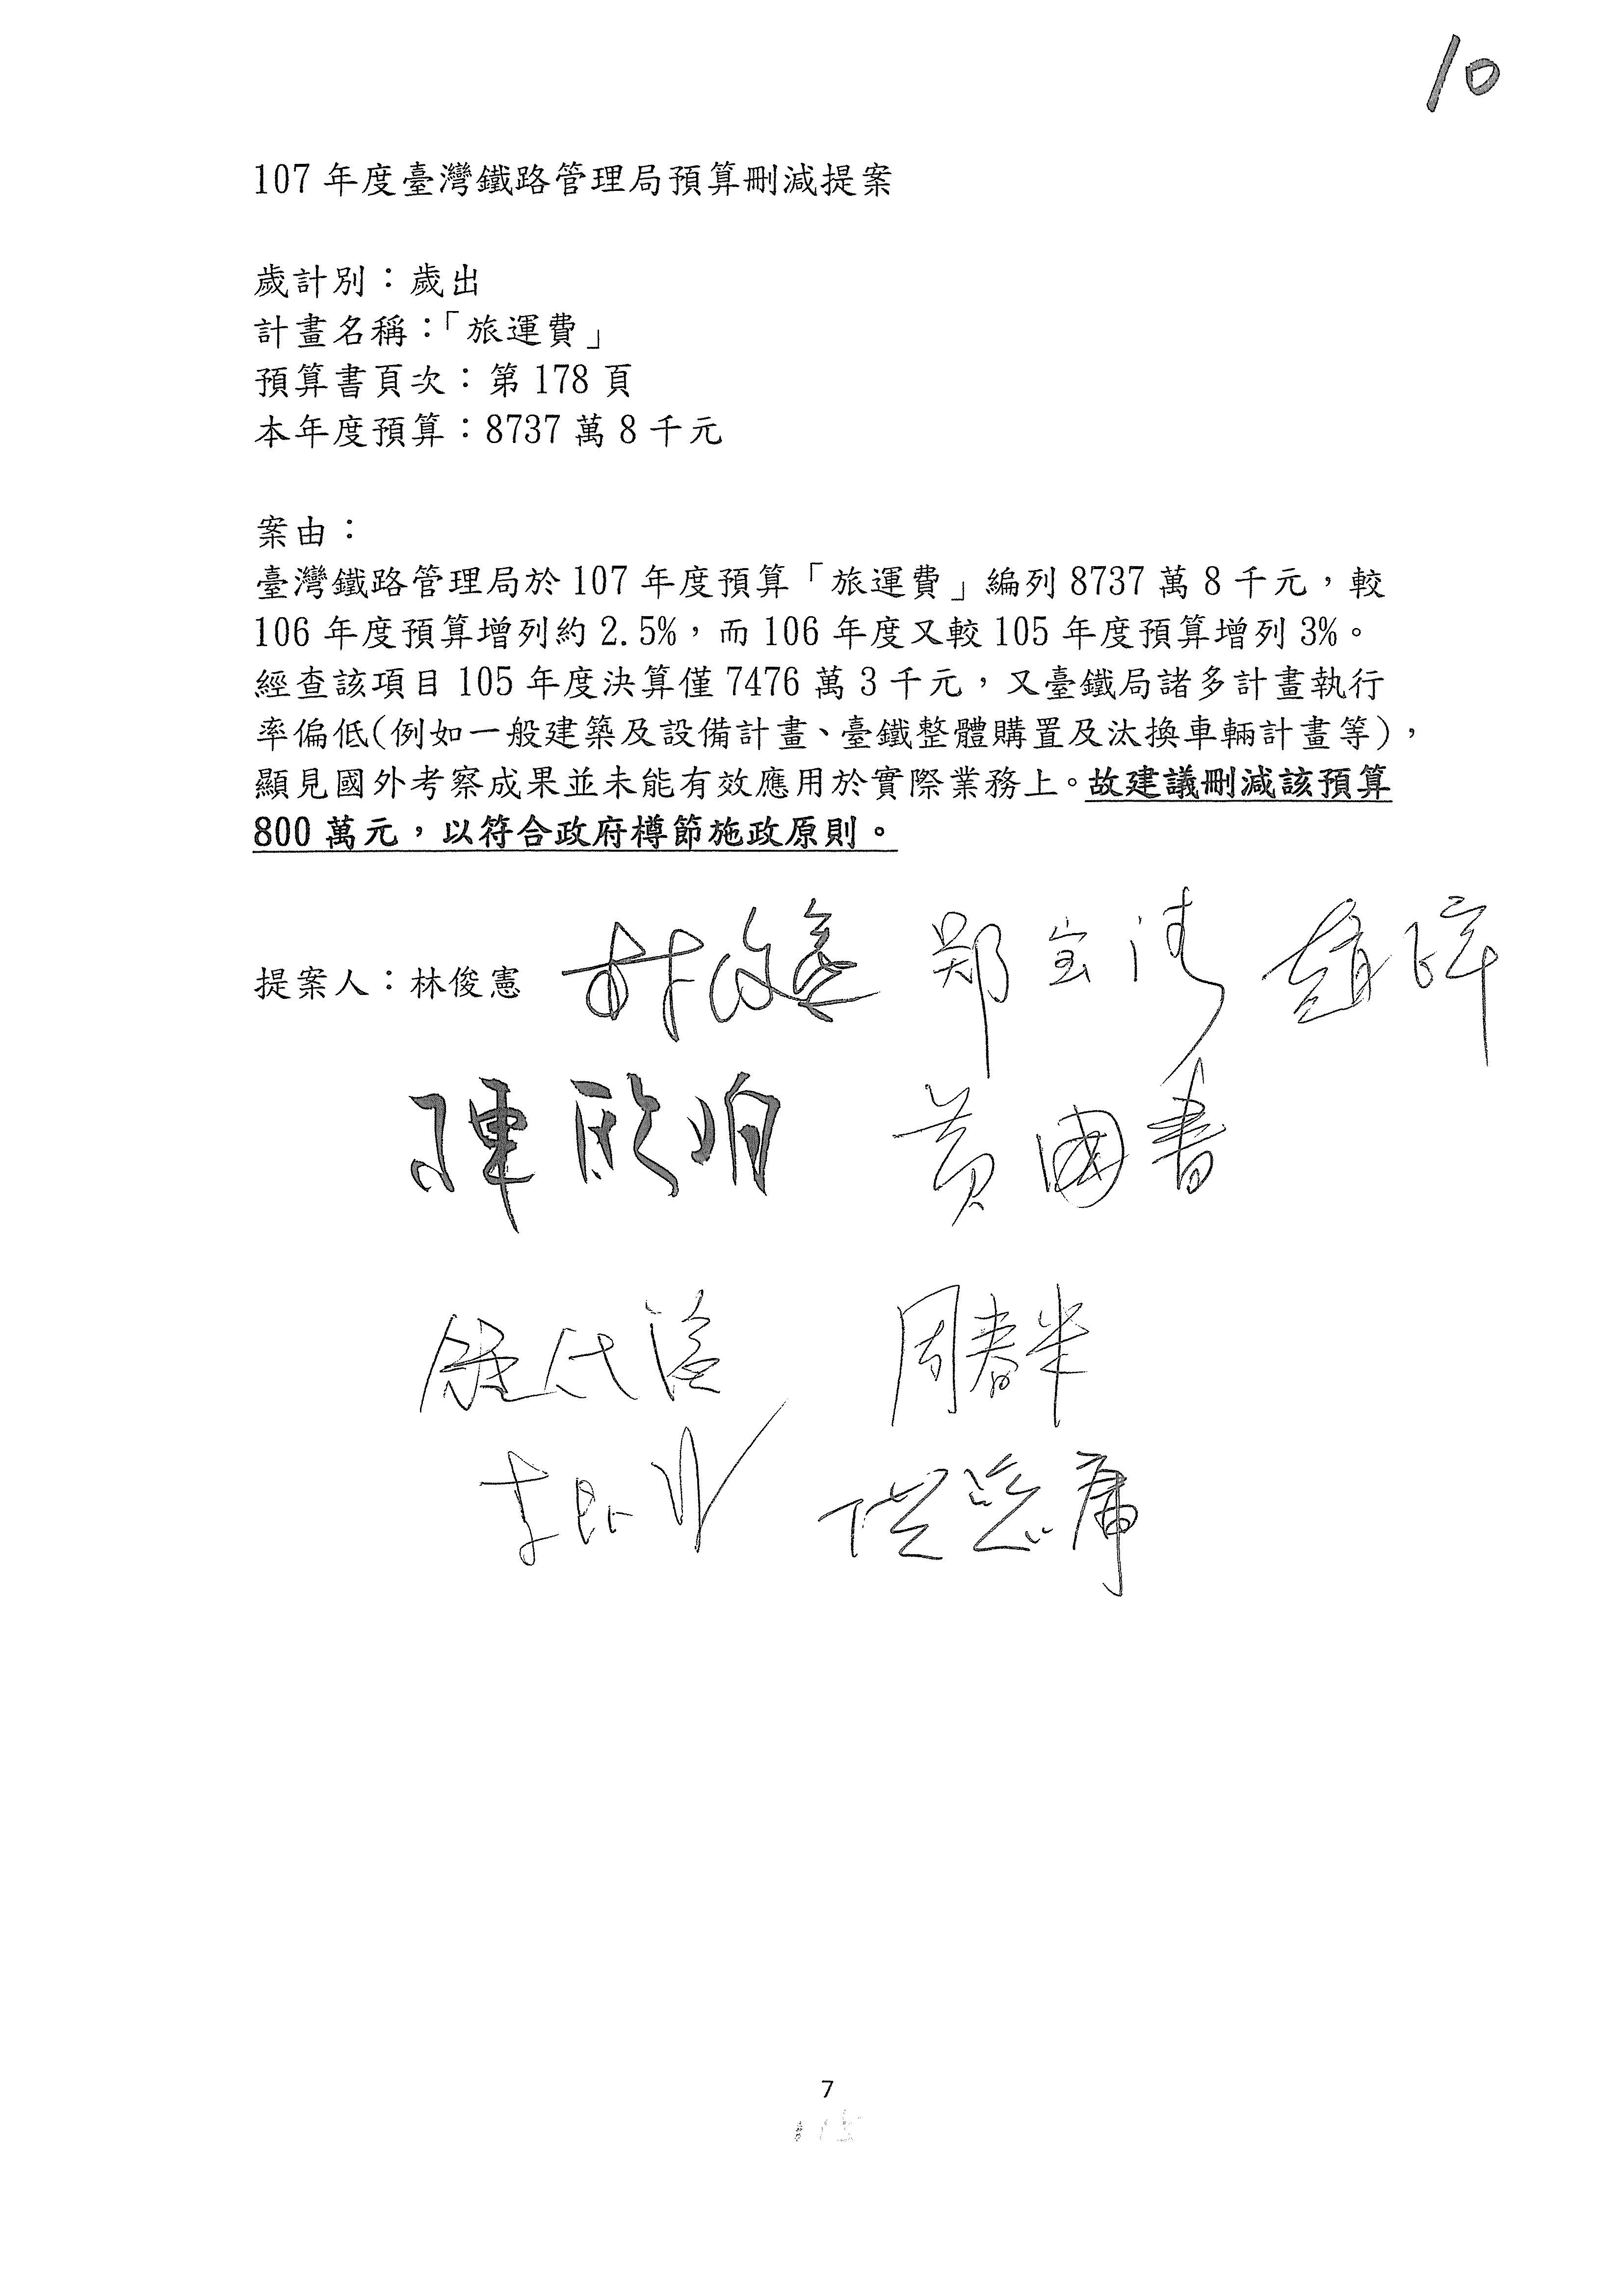 10
107 年度臺灣鐵路管理局預算刪減提案
歲計別：歲出
計畫名稱：「旅運費」
預算書頁次：第 178 頁
本年度預算：8737 萬 8 千元
案由：
臺灣鐵路管理局於 107 年度預算「旅運費」編列 8737 萬 8 千元，較
106 年度預算增列約 2.5%，而 106 年度又較 105 年度預算增列 3%。
經查該項目 105 年度決算僅 7476 萬 3 千元，又臺鐵局諸多計畫執行
率偏低(例如一般建築及設備計畫、臺鐵整體購置及汰換車輛計畫等)，
顯見國外考察成果並未能有效應用於實際業務上。故建議刪減該預算
800 萬元，以符合政府樽節施政原則。
提案人：林俊憲 林俊憲 鄭宝清
陳歐珀 黃國書
周春米
7